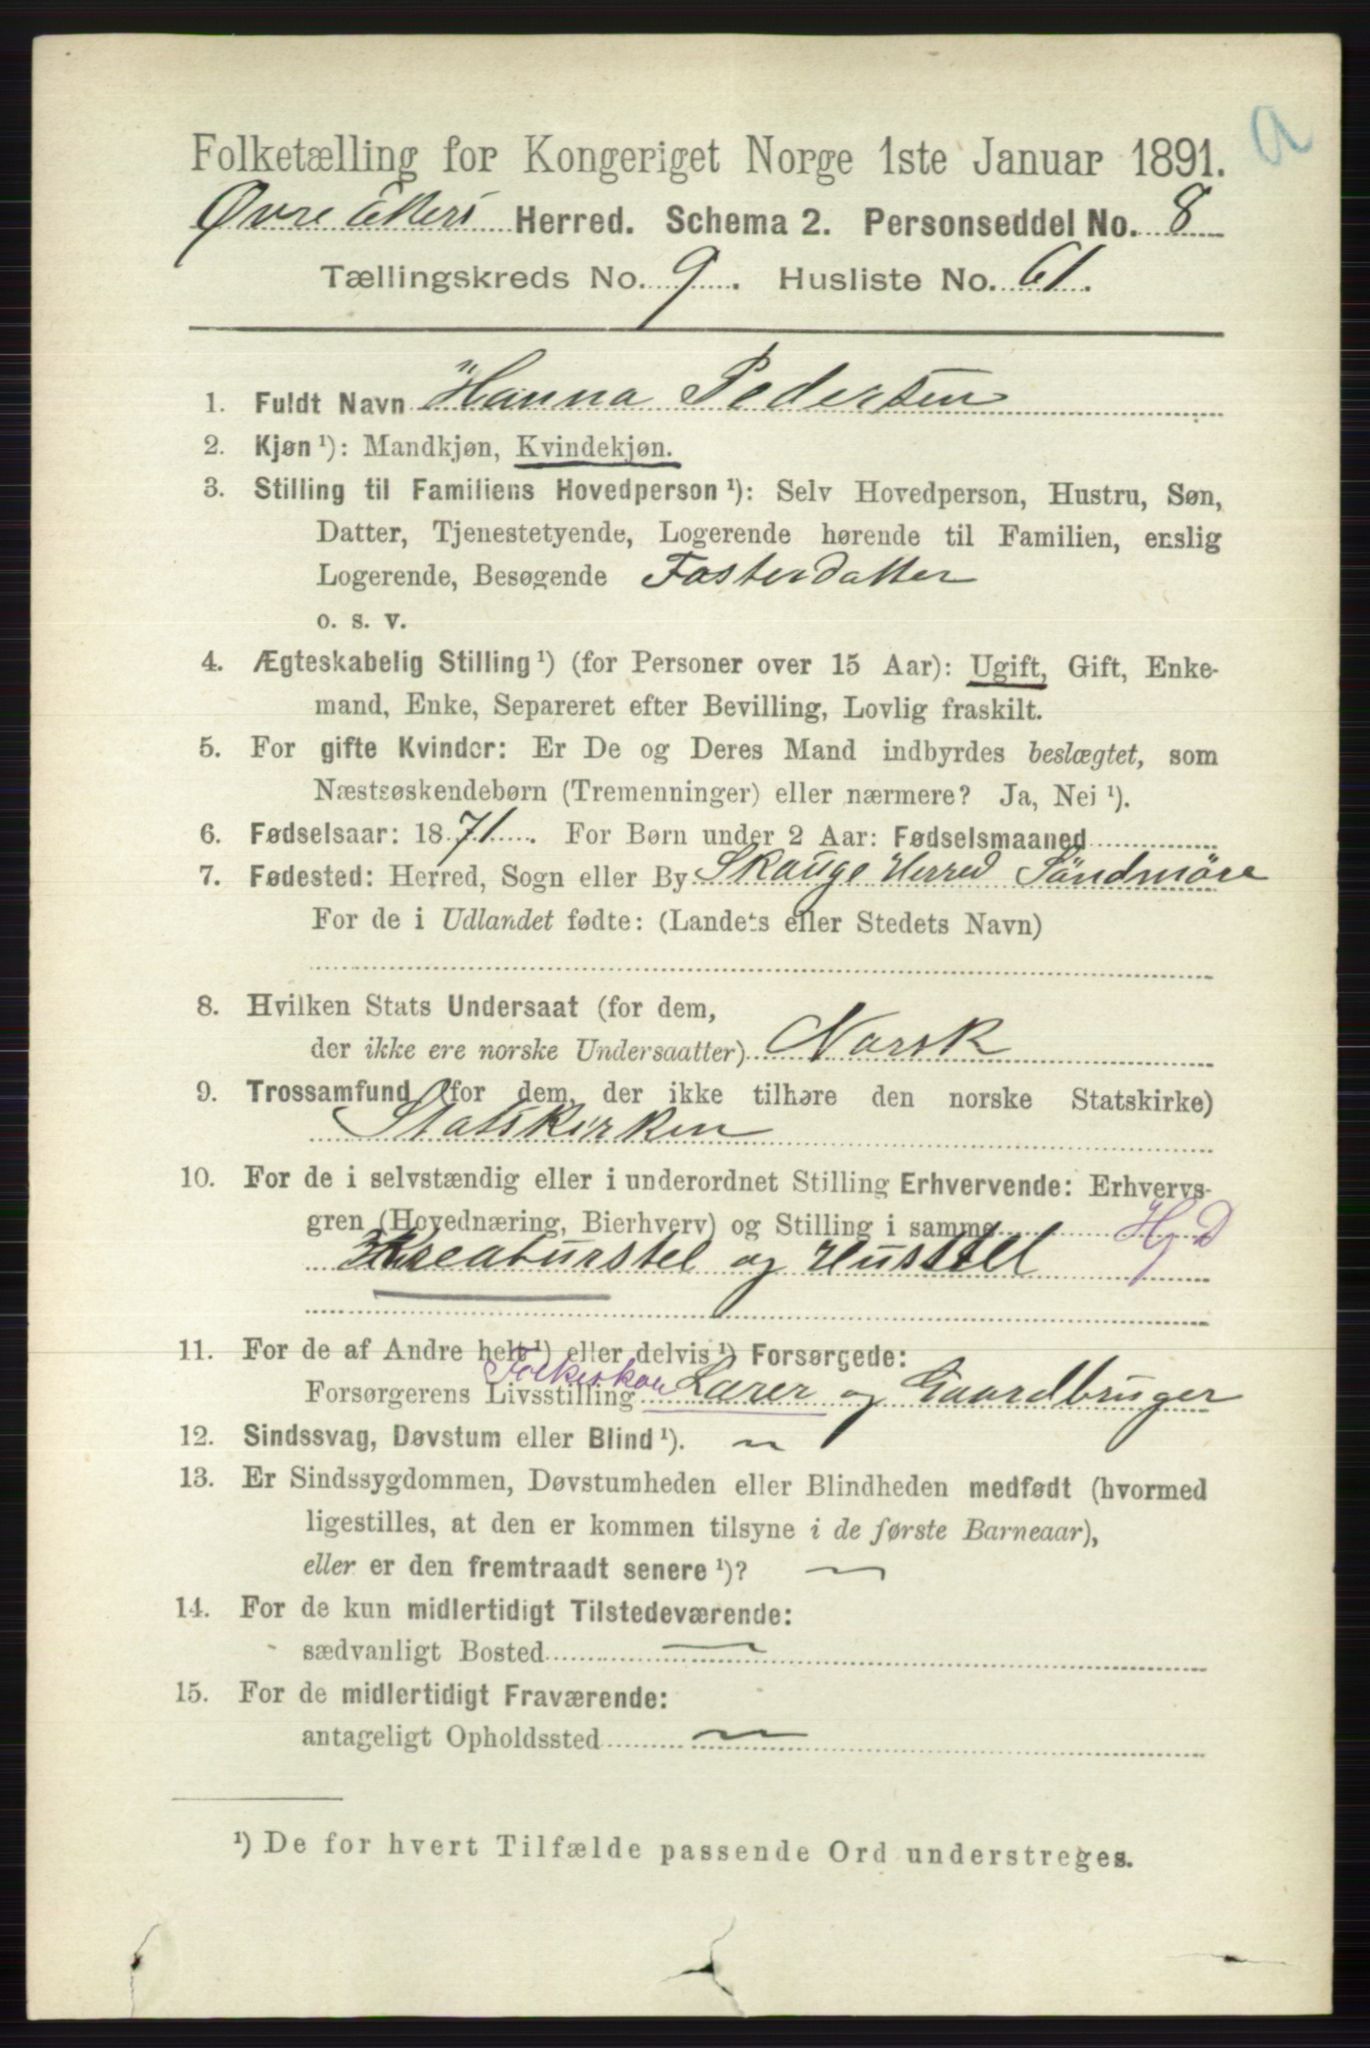 a
Folketælling for Kongeriget Norge 1ste Januar 1891.
Øvre Ekers Herred. Schema 2. Personseddel No. 8
Tællingskreds No. 9. Husliste No. 61.
1. Fuldt Navn Hanna Pedersen
2. Kjøn ¹): Mandkjøn, Kvindekjøn.
3. Stilling til Familiens Hovedperson ¹): Selv Hovedperson, Hustru, Søn,
Datter, Tjenestetyende, Logerende hørende til Familien, enslig
Logerende, Besøgende Fosterdatter
o. s. v.
4. Ægteskabelig Stilling ¹) (for Personer over 15 Aar): Ugift, Gift, Enke-
mand, Enke, Separeret efter Bevilling, Lovlig fraskilt.
5. For gifte Kvinder: Er De og Deres Mand indbyrdes beslægtet, som
Næstsøskendebørn (Tremenninger) eller nærmere? Ja, Nei ¹).
6. Fødselsaar: 1871. For Børn under 2 Aar: Fødselsmaaned
7. Fødested: Herred, Sogn eller By Skauge Herred Søndmøre
For de i Udlandet fødte: (Landets eller Stedets Navn)
8. Hvilken Stats Undersaat (for dem,
der ikke ere norske Undersaatter) Norsk
9. Trossamfund (for dem, der ikke tilhøre den norske Statskirke)
Statskirken
10. For de i selvstændig eller i underordnet Stilling Erhvervende: Erhvervs-
gren (Hovednæring, Bierhverv) og Stilling i samme Hj D
Kreaturstel og Husstel
11. For de af Andre helt ¹) eller delvis ¹) Forsørgede:
Forsørgerens Livsstilling Folkeskole Lærer og Gaardbruger
12. Sindssvag, Døvstum eller Blind ¹).
13. Er Sindssygdommen, Døvstumheden eller Blindheden medfødt (hvormed
ligestilles, at den er kommen tilsyne i de første Barneaar),
eller er den fremtraadt senere ¹)?
14. For de kun midlertidigt Tilstedeværende:
sædvanligt Bosted
15. For de midlertidigt Fraværende:
antageligt Opholdssted
¹) De for hvert Tilfælde passende Ord understreges.